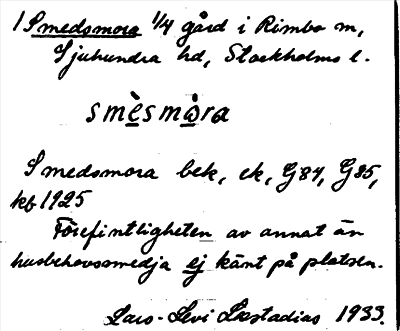 1 Smedsmora 1/4 gård i Rimbo sn,
Sjuhundra hd, Stockholms l.
smèsmòra
Smedsmora bek, ek, G84, G85,
kb 1925
Förefintligheten av annat än
husbehovssmedja ej känt på platsen.
Lars-Levi Læstadius 1933.